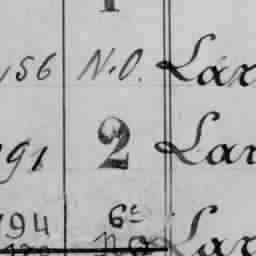 156 N.O. Lar
91 2 Lar
194 6e Lar
N.O.